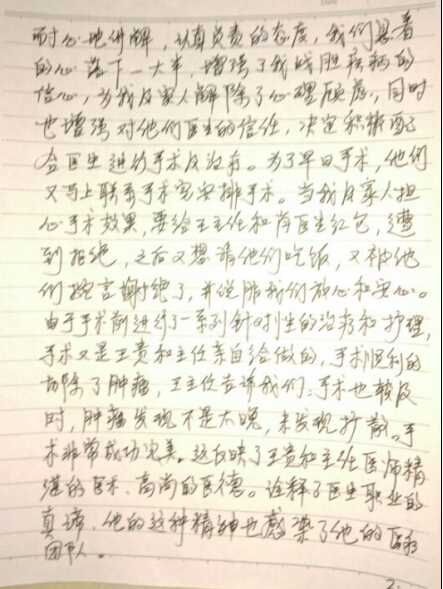 耐心地讲解，认真负责的态度，我们悬着
的心落下一大半，增强了我战胜疾病的
信心，为我及家人解除了心理顾虑，同时
也增强对他们医生的信任，决定积极配
合医生进行手术及治疗。为了早日手术，他们
又马上联系手术室安排手术。当我及家人担
心手术效果，要给王主任和肖医生红包，遭
到拒绝，之后又想请他们吃饭，又被他
们婉言谢绝了，并说服我们放心和安心。
由于手术前进行了一系列针对性的治疗和护理，
手术又是王贵和主任亲自给做的，手术顺利的
切除了肿瘤，王主任告诉我们：手术也较及
时，肿瘤发现不是太晚，未发现扩散。手
术非常成功完美。这反映了王贵和主任医师精
湛的医术、高尚的医德。诠释了医生职业的
真谛，他的这种精神也感染了他的医疗
团队人。
2.